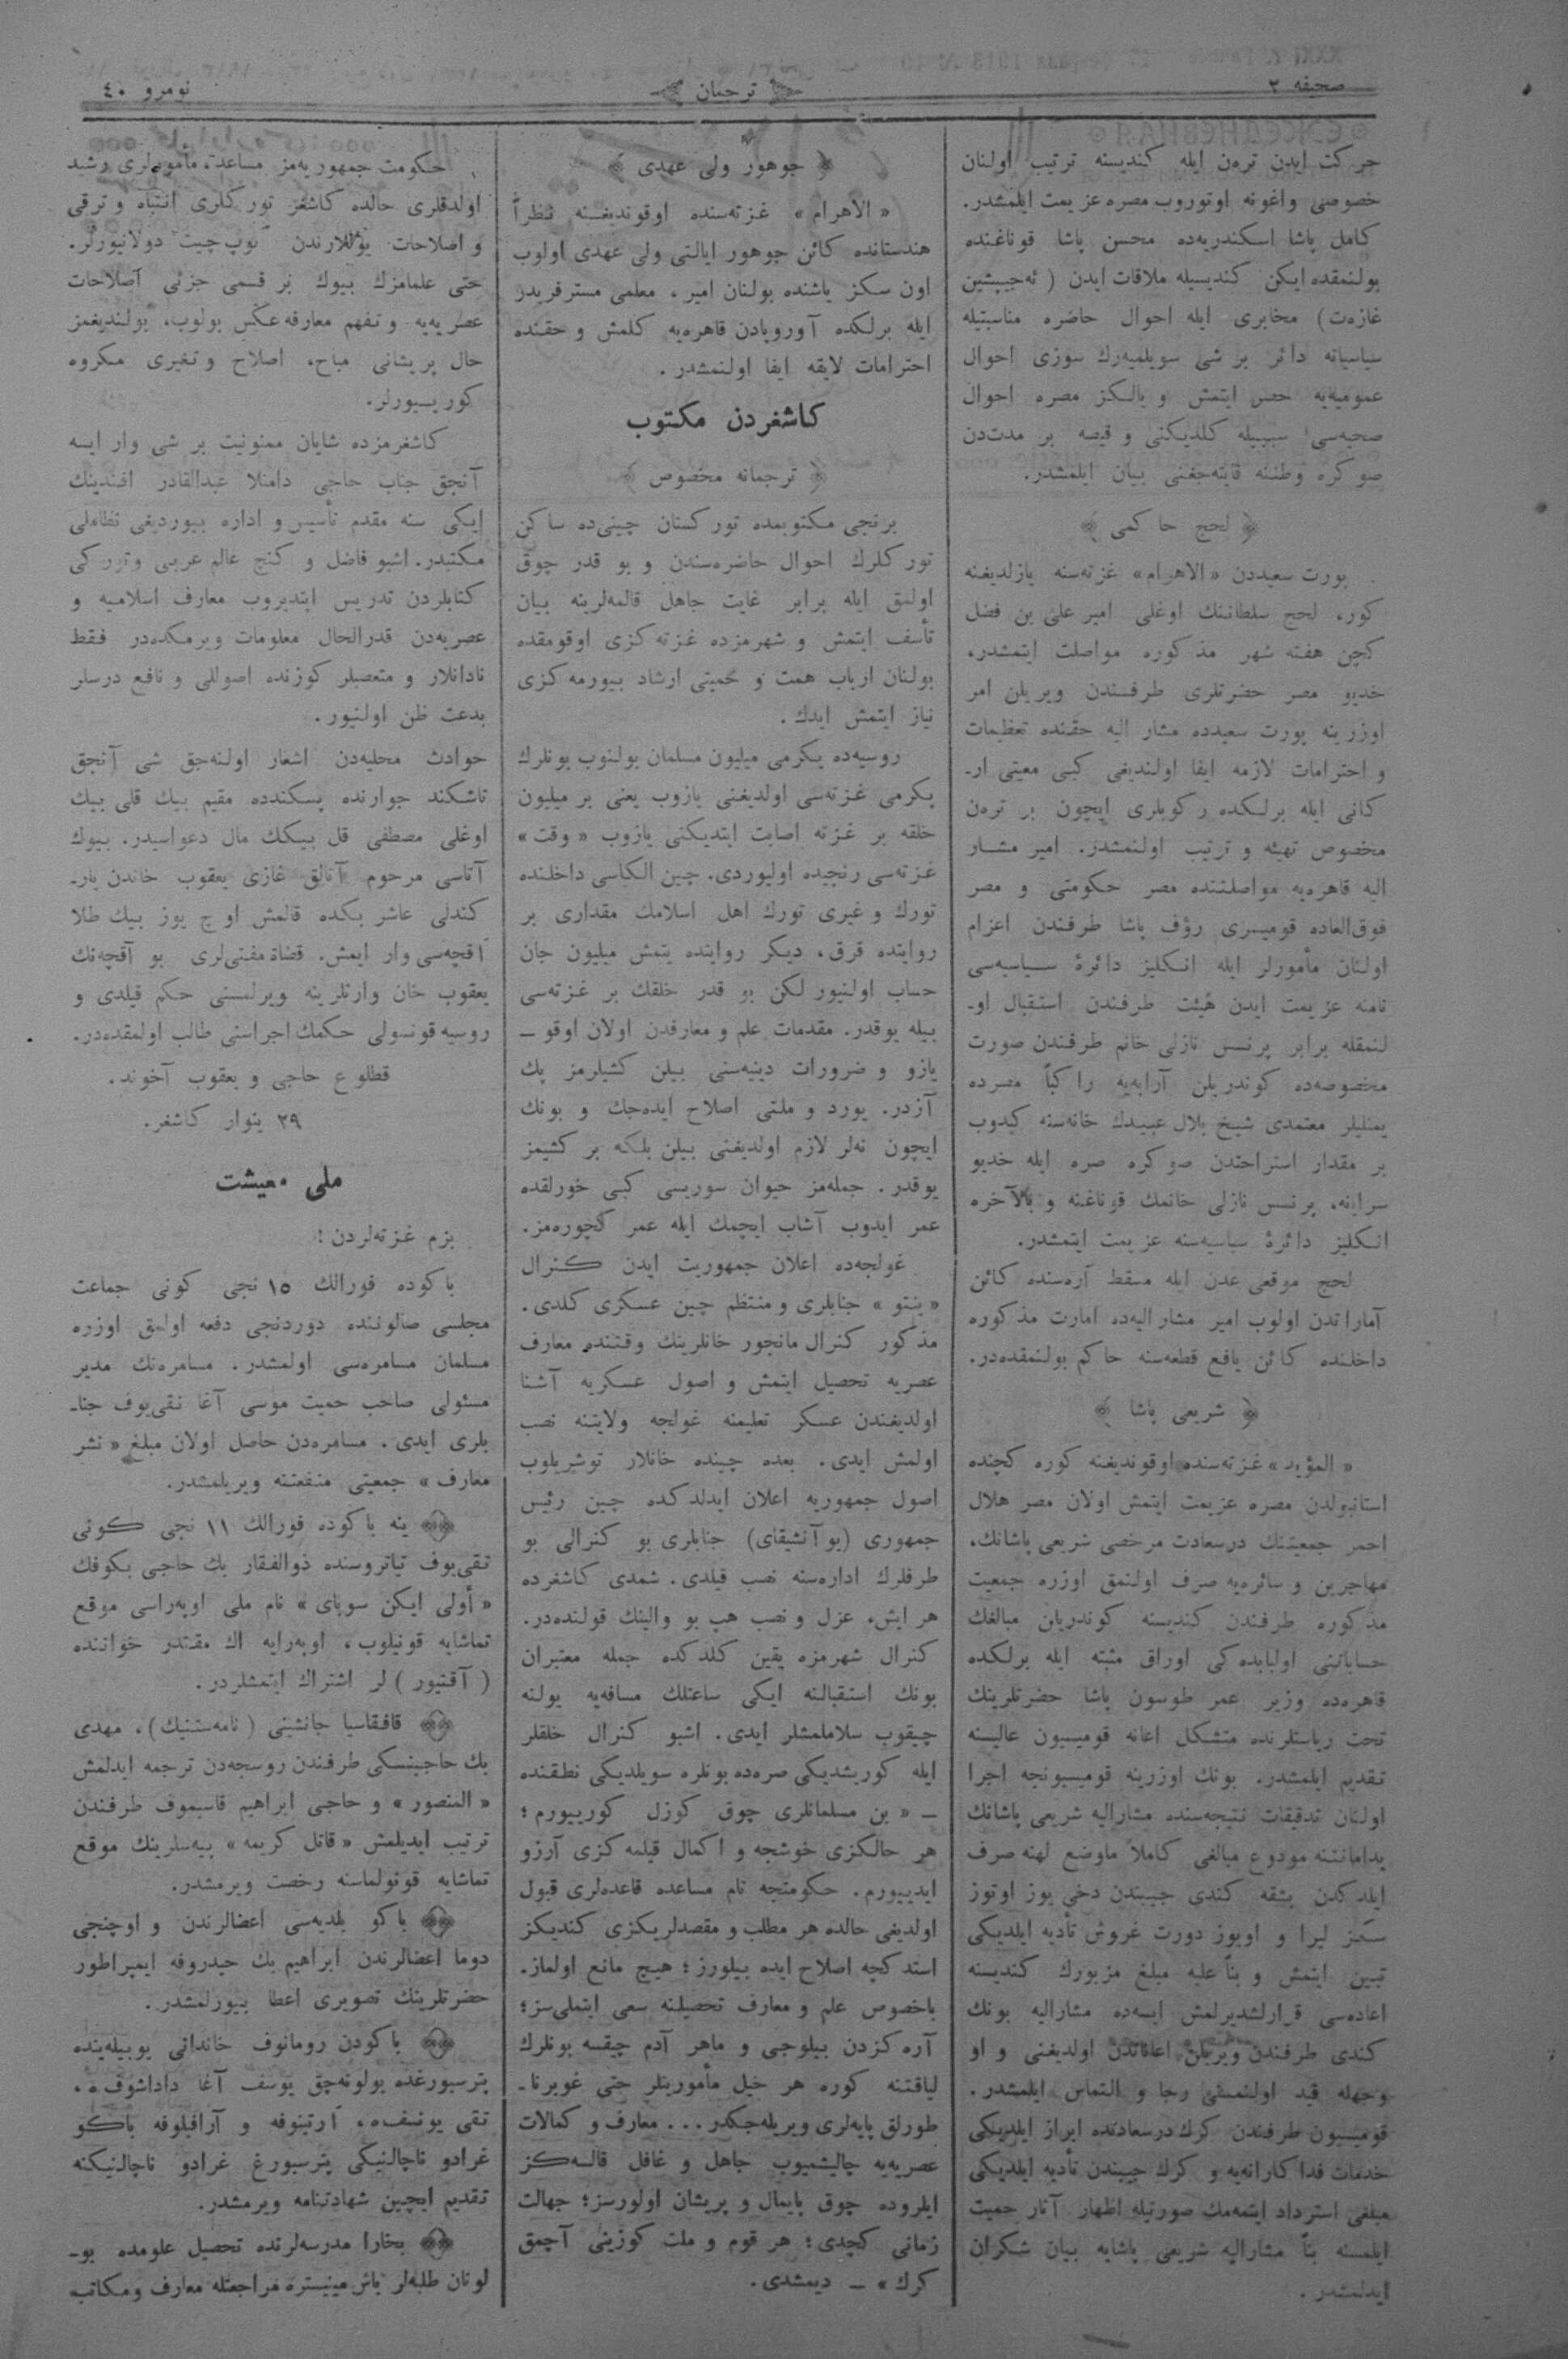 صحیفه ٢
ترجمان
نومرو ٤٠
حركت ایدن ترەن ایله كندیسنه ترتیب اولنان
خصوصی واغونه اوتوروب مصره عزیمت ایلمشدر.
كامل پاشا اسكندریه‌ده محسن پاشا قوناغنده
بولنمقده ایكن كندیسیله ملاقات ایدن (ئه‌جیپشین
غازەت) مخابری ایله احوال حاضره مناسبتیله
سیاسیاته دائر بر شی سویلمیه‌رك سوزی احوال
عمومیه‌یه حصر ایتمش و یالكز مصره احوال
صحیه‌سی سببیله كلدیكنی و قیصه بر مدت‌دن
صوكره وطننه قایته‌جغنی بیان ایلمشدر.
﴿ لحج حاكمی ﴾
پورت سعیددن «الاهرام» غزته‌سنه یازلدیغنه
كوره، لحج سلطاننك اوغلی امیر علی بن فضل
كچن هفته شهر مذكوره مواصلت ایتمشدر،
خدیو مصر حضرتلری طرفندن ویریلن امر
اوزرینه پورت سعیدده مشار الیه حقنده تعظیمات
و احترامات لازمه ایفا اولندیغی كبی معیتی ار-
كانی ایله برلكده ركوبلری ایچون بر ترەن
مخصوص تهیئه و ترتیب اولنمشدر. امیر مشار
الیه قاهره‌یه مواصلتنده مصر حكومتی و مصر
فوق‌العاده قومیسری رؤف پاشا طرفندن اعزام
اولنان مأمورلر ایله انكلیز دائرۀ سیاسیه‌سی
نامنه عزیمت ایدن هیئت طرفندن استقبال او-
لنمقله برابر پرنسس نازلی خانم طرفندن صورت
مخصوصه‌ده كوندریلن آرابه‌یه راكباً مصرده
یمنلیلر معتمدی شیخ بلال عبیدك خانه‌سنه كیدوب
بر مقدار استراحتدن صوكره صره ایله خدیو
سراینه، پرنسس نازلی خانمك قوناغنه و بالآخره
انكلیز دائرۀ سیاسیه‌سنه عزیمت ایتمشدر.
لحج موقعی عدن ایله مسقط آره‌سنده كائن
آماراتدن اولوب امیر مشار الیه‌ده امارت مذكوره
داخلنده كائن یافع قطعه‌سنه حاكم بولنمقده‌در.
﴿ شریعی پاشا ﴾
«المؤید» غزته‌سنده اوقوندیغنه كوره كچنده
استانبولدن مصره عزیمت ایتمش اولان مصر هلال
احمر جمعیتنك درسعادت مرخصی شریعی پاشانك،
مهاجرین و سائره‌یه صرف اولنمق اوزره جمعیت
مذكوره طرفندن كندیسنه كوندریلن مبالغك
حساباتنی اولبابده‌كی اوراق مثبته ایله برلكده
قاهره‌ده وزیر عمر طوسون پاشا حضرتلرینك
تحت ریاستلرنده متشكل اعانه قومیسیون عالیسنه
تقدیم ایلمشدر. بونك اوزرینه قومیسیونجه اجرا
اولنان تدقیقات نتیجه‌سنده مشارالیه شریعی پاشانك
یدامانتنه مودوع مبالغی كاملاً ماوضع لهنه صرف
ایلدكدن بشقه كندی جیبندن دخی یوز اوتوز
سكز لیرا و اویوز دورت غروش تأدیه ایلدیكی
تبین ایتمش و بناً علیه مبلغ مزبورك كندیسنه
اعاده‌سی قرارلشدیرلمش ایسه‌ده مشارالیه بونك
كندی طرفندن ویریلن اعاناتدن اولدیغنی و او
وجهله قید اولنمسنی رجا و التماس ایلمشدر.
قومیسیون طرفندن كرك درسعادتده ابراز ایلدیكی
خدمات فداكارانه‌یه و كرك جیبندن تأدیه ایلدیكی
مبلغی استرداد ایتمه‌مك صورتیله اظهار آثار حمیت
ایلمسنه بناً مشارالیه شریعی پاشایه بیان شكران
ایدلمشدر.
﴿ جوهور ولی عهدی ﴾
«الاهرام» غزته‌سنده اوقوندیغنه نظراً
هندستانده كائن جوهور ایالتی ولی عهدی اولوب
اون سكز یاشنده بولنان امیر، معلمی مسترفریدر
ایله برلكده آوروپادن قاهره‌یه كلمش و حقنده
احترامات لایقه ایفا اولنمشدر.
كاشغردن مكتوب
﴿ ترجمانه مخصوص ﴾
برنجی مكتوبمده توركستان چینی‌ده ساكن
توركلرك احوال حاضره‌سندن و بو قدر چوق
اولمق ایله برابر غایت جاهل قالمه‌لرینه بیان
تأسف ایتمش و شهرمزده غزته‌كزی اوقومقده
بولنان ارباب همت و حمیتی ارشاد بیورمه‌كزی
نیاز ایتمش ایدك.
روسیه‌ده یكرمی میلیون مسلمان بولنوب بونلرك
یكرمی غزته‌سی اولدیغنی یازوب یعنی بر میلیون
خلقه بر غزته اصابت ایتدیكنی یازوب «وقت»
غزته‌سی رنجیده اولیوردی. چین الكاسی داخلنده
تورك و غیری تورك اهل اسلامك مقداری بر
روایتده قرق، دیكر روایتده یتمش میلیون جان
حساب اولنیور لكن بو قدر خلقك بر غزته‌سی
بیله یوقدر. مقدمات علم و معارفدن اولان اوقو-
یازو و ضرورات دینیه‌سنی بیلن كشیلرمز پك
آزدر. یورد و ملتی اصلاح ایده‌جك و بونك
ایچون نه‌لر لازم اولدیغنی بیلن بلكه بر كشیمز
یوقدر. جمله‌مز حیوان سوریسی كبی خورلقده
عمر ایدوب آشاب ایچمك ایله عمر كچوره‌مز.
غولجه‌ده اعلان جمهوریت ایدن كنرال
«ینتو» جنابلری و منتظم چین عسكری كلدی.
مذكور كنرال مانجور خانلرینك وقتنده معارف
عصریه تحصیل ایتمش و اصول عسكریه آشنا
اولدیغندن عسكر تعلیمنه غولجه ولایتنه نصب
اولمش ایدی. بعده چینده خانلار توشریلوب
اصول جمهوریه اعلان ایدلدكده چین رئیس
جمهوری (یو آنشیقای) جنابلری بو كنرالی بو
طرفلرك اداره‌سنه نصب قیلدی. شمدی كاشغرده
هر ایش، عزل و نصب هپ بو والینك قولنده‌در.
كنرال شهرمزه یقین كلدكده جمله معتبران
بونك استقبالنه ایكی ساعتلك مسافه‌یه یولنه
چیقوب سلاملمشلر ایدی. اشبو كنرال خلقلر
ایله كوریشدیكی صره‌ده بونلره سویلدیكی نطقنده
– «بن مسلمانلری چوق كوزل كورییورم؛
هر حالكزی خوشجه و اكمال قیلمه‌كزی آرزو
ایدییورم. حكومتجه تام مساعده قاعده‌لری قبول
اولدیغی حالده هر مطلب و مقصدلریكزی كندیكز
استدكچه اصلاح ایده بیلورز؛ هیچ مانع اولماز.
باخصوص علم و معارف تحصیلنه سعی ایتملی‌سز؛
آره‌كزدن بیلوجی و ماهر آدم چیقسه بونلرك
لیاقتنه كوره هر خیل مأموریتلر حتی غوبرنا-
طورلق پایه‌لری ویریله‌جكدر... معارف و كمالات
عصریه‌یه چالیشمیوب جاهل و غافل قالسه‌كز
ایلروده چوق پایمال و پریشان اولورسز؛ جهالت
زمانی كچدی؛ هر قوم و ملت كوزینی آچمق
كرك» – دیمشدی.
حكومت جمهوریه‌مز مساعد، مأمورلری رشید
اولدقلری حالده كاشغر توركلری انتباه و ترقی
و اصلاحات یوللارندن توپ‌چیت دولانیورلر.
حتی علمامزك بیوك بر قسمی جزئی اصلاحات
عصریه‌یه و تفهم معارفه عكس بولوب، بولندیغمز
حال پریشانی مباح، اصلاح و تغیری مكروه
كوریبورلر.
كاشغرمزده شایان ممنونیت بر شی وار ایسه
آنجق جناب حاجی داملا عبدالقادر افندینك
ایكی سنه مقدم تأسیس و اداره بیوردیغی نظاملی
مكتبدر. اشبو فاضل و كنج عالم عربی وتوركی
كتابلردن تدریس ایتدیروب معارف اسلامیه و
عصریه‌دن قدرالحال معلومات ویرمكده‌در فقط
نادانلار و متعصبلر كوزنده اصوللی و نافع درسلر
بدعت ظن اولنیور.
حوادث محلیه‌دن اشعار اولنه‌جق شی آنجق
تاشكند جوارنده پسكندده مقیم بیك قلی بیك
اوغلی مصطفی قل بیكك مال دعواسیدر. بیوك
آتاسی مرحوم آتالق غازی یعقوب خاندن یار-
كندلی عاشر بكده قالمش اوچ یوز بیك طلا
آقچه‌سی وار ایمش. قضاة مفتی‌لری بو آقچه‌نك
یعقوب خان وارثلرینه ویرلمسنی حكم قیلدی و
روسیه قونسولی حكمك اجراسنی طالب اولمقده‌در.
قطلوع حاجی و یعقوب آخوند.
٢٩ ینوار كاشغر.
ملی معیشت
بزم غزته‌لردن:
باكوده فورالك ١٥ نجی كونی جماعت
مجلسی صالوننده دوردنجی دفعه اولمق اوزره
مسلمان مسامره‌سی اولمشدر. مسامره‌نك مدیر
مسئولی صاحب حمیت موسی آغا نقی‌یوف جنا-
بلری ایدی. مسامره‌دن حاصل اولان مبلغ «نشر
معارف» جمعیتی منفعتنه ویریلمشدر.
ینه باكوده فورالك ١١ نجی كونی
تقی‌یوف تیاتروسنده ذوالفقار بك حاجی بكوفك
«أولی ایكن سوبای» نام ملی اوپه‌راسی موقع
تماشایه قونیلوب، اوپه‌رایه اك مقتدر خواننده
(آقتیور) لر اشتراك ایتمشلردر.
قافقاسیا جانشینی (نامه‌ستنیك)، مهدی
بك حاجینسكی طرفندن روسجه‌دن ترجمه ایدلمش
«المنصور» و حاجی ابراهیم قاسیموف طرفندن
ترتیب ایدیلمش «قاتل كریمه» پیه‌سلرینك موقع
تماشایه قونولماسنه رخصت ویرمشدر.
باكو بلدیه‌سی اعضالرندن و اوچنجی
دوما اعضالرندن ابراهیم بك حیدروفه ایمپراطور
حضرتلرینك تصویری اعطا بیورلمشدر.
باكودن رومانوف خاندانی یوبیله‌ینده
پترسبورغده بولونه‌جق یوسف آغا داداشوف‌ه،
تقی یوسف‌ه، آرتینوفه و آرافیلوفه باكو
غرادو ناچالنیكی پترسبورغ غرادو ناچالنیكنه
تقدیم ایچین شهادتنامه ویرمشدر.
بخارا مدرسه‌لرنده تحصیل علومده بو-
لونان طلبه‌لر باش مینیستره مراجعتله معارف ومكاتب